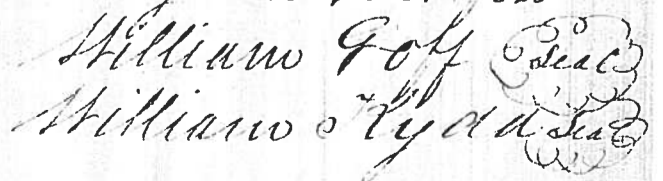 William Goff Seal
William Kydd Seal